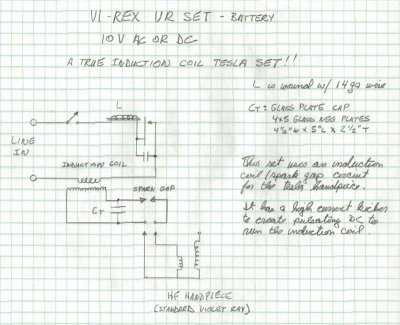 VI-REX UR SET - BATTERY
10V AC OR DC
A TRUE INDUCTION COIL TESLA SET!!
L is wound w/ 14ga wire
CT = GLASS PLATE CAP
4x5 GLASS NEG PLATES
4½" W x 5" L x 2½" T
L
LINE
IN
INDUCTION COIL
SPARK GAP
CT
This set uses an induction
coil/spark gap circuit
for the tesla handpiece.
It has a high current kicker
to create pulsating DC to
run the induction coil.
HF HANDPIECE
(STANDARD VIOLET RAY)